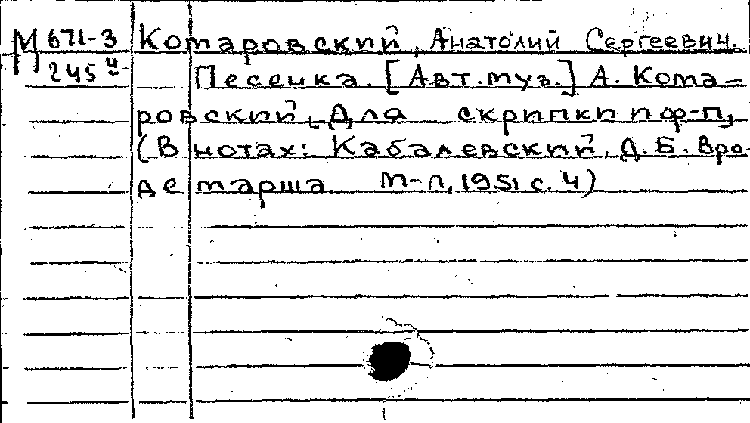 М 671-3 Комаровский, Анатолий Сергеевич.
245 ч Песенка. [Авт. муз.] А. Кома-
ровский, Для скрипки и ф-п,
(В нотах: Кабалевский, Д. Б. Вро-
де марша М-Л, 1951 с. 4)